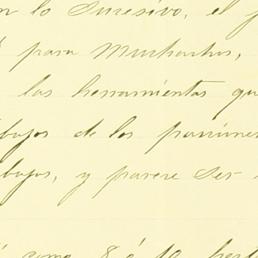 n lo sucesivo, el
para muchachos,
las herramientas qu
bajos de los
bajos, y parece ser
como 8 ó 10